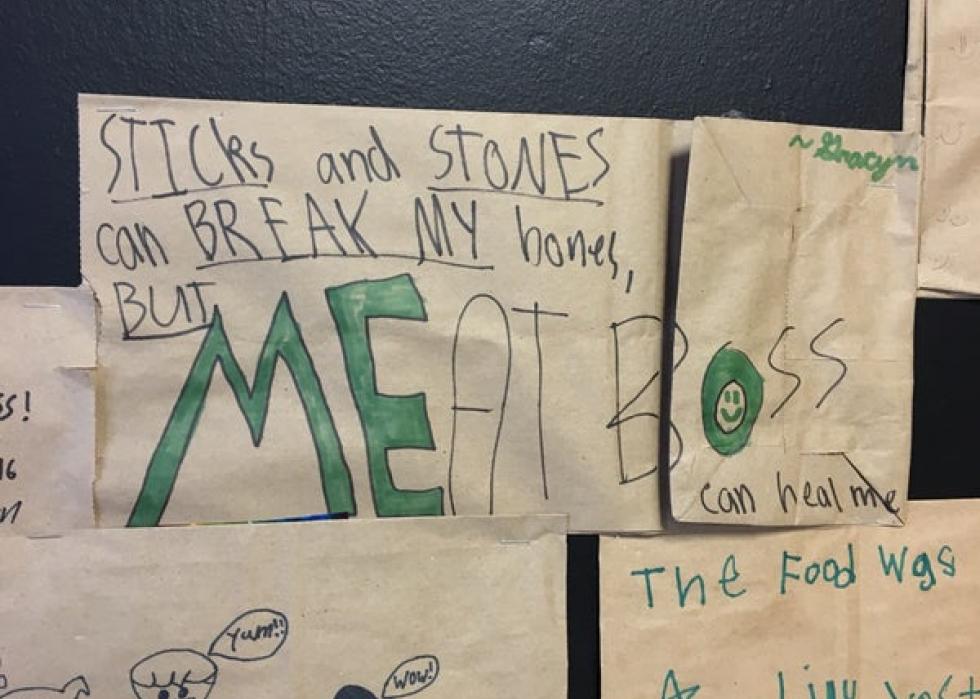 ~ Gracyn
STICKs and STONES
can BREAK MY bones,
BUT
MEAT BOSS
can heal me
ss!
16
Yum!!
WOW!
The Food Was
A